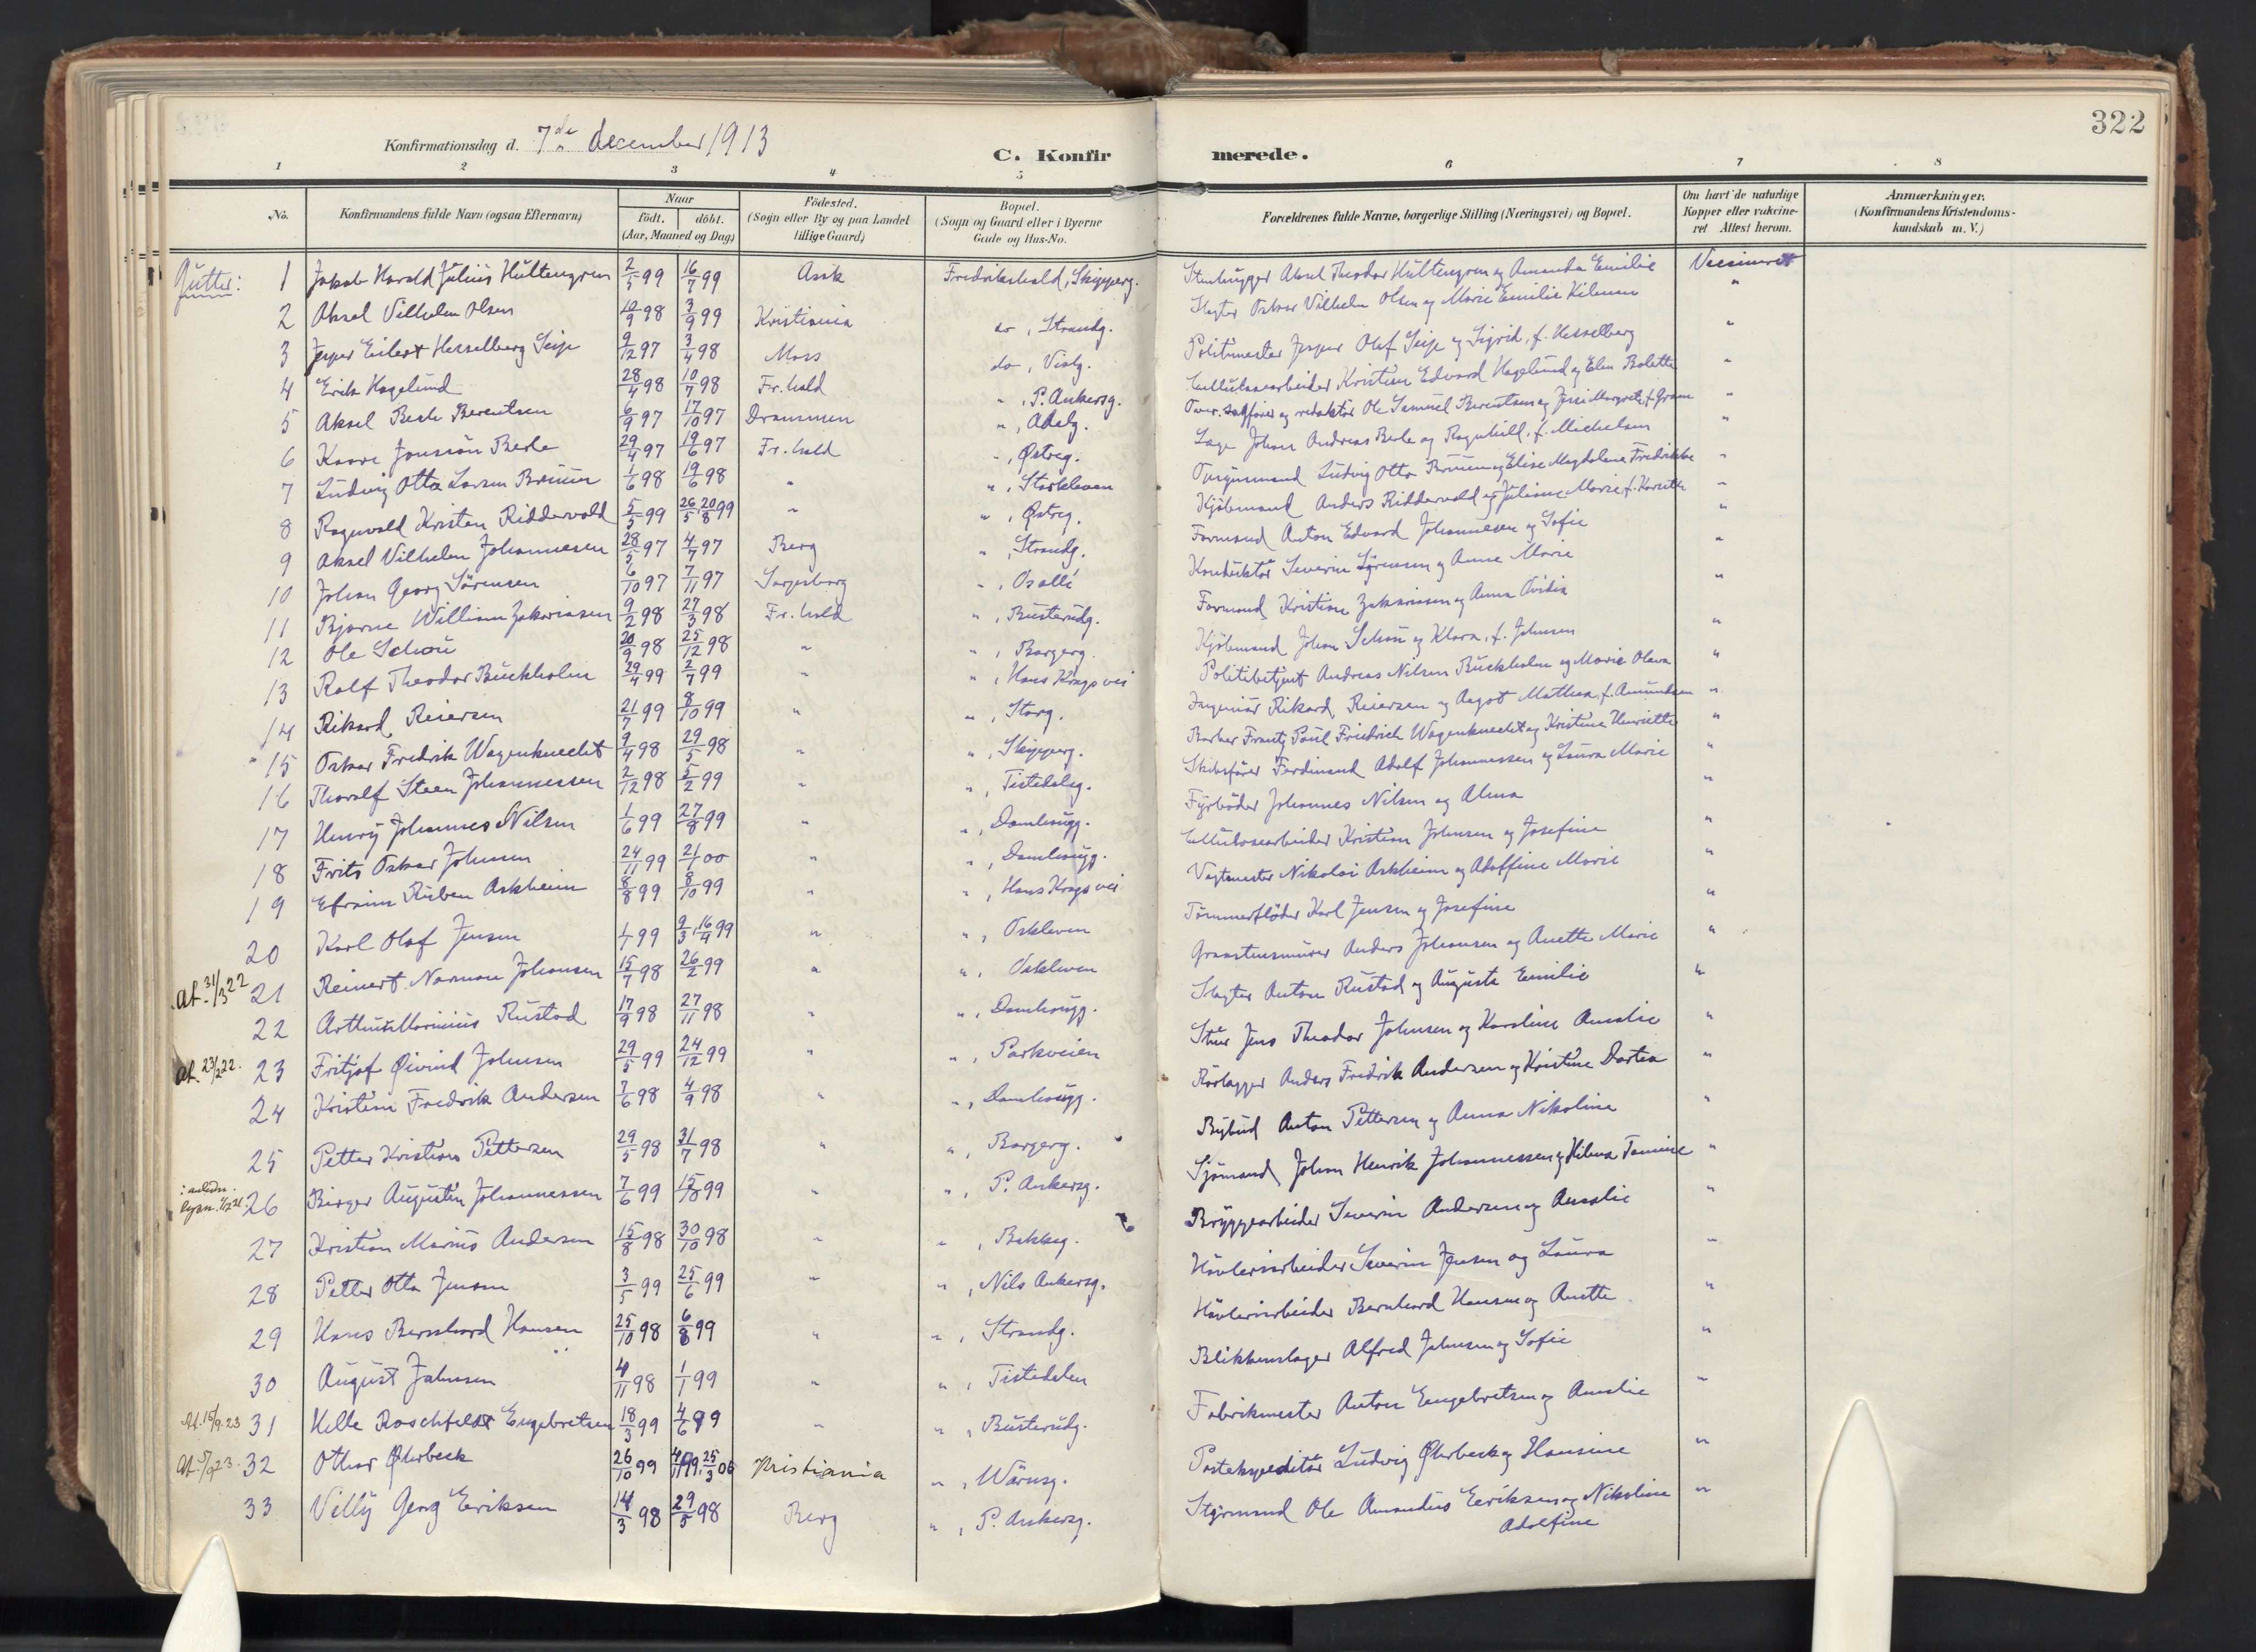 322
Konfirmationsdag d. 7de december 1913
C. Konfirmerede.
1 2 3 4 5 6 7 8
No. | Konfirmandens fulde Navn (ogsaa Efternavn) | Naar født. døbt. (Aar, Maaned og Dag) | Fødested. (Sogn eller By og paa Landet tillige Gaard) | Bopæl. (Sogn og Gaard eller i Byerne Gade og Hus-No. | Forældrenes fulde Navne, borgerlige Stilling (Næringsvei) og Bopæl. | Om havt de naturlige Kopper eller vakcineret Attest herom. | Anmærkninger. (Konfirmandens Kristendomskundskab m. V.)
Gutter:
1 Jakob Harald Julius Hultengren 2/5 99 16/7 99 Fredrikshald, Skipperg. Stenhugger Aksel Theodor Hultengren og Amanda Emilie Vaccineret
2 Aksel Vilhelm Olsen 10/9 98 3/9 99 Kristiania do, Strandg. Slagter Oskar Vilhelm Olsen og Marie Emilie "
3 Jesper Eilert Hesselberg Seip 9/12 97 3/4 98 Moss do, Violg. Politimester Jesper Olaf Seip og Sigrid, f. Hesselberg "
4 Erik Hagelund 28/4 98 10/7 98 Fr.hald ", P. Ankersg. Cellulosearbeider Kristian Edvard Hagelund og Elen Bolette "
5 Aksel Berle Berentsen 6/9 97 17/10 97 Drammen ", Adelg. Over.sagfører og redaktør Ole Samuel Berentsen og "
6 Kaare Jonssøn Berle 29/4 97 19/6 97 Fr.hald ", Østreg. Læge Johan Andreas Berle og Ragnhild, f. Michelsen "
7 Ludvig Otto Larsen Bruun 1/6 98 19/6 98 " ", Storkleven Ludvig Otto Bruun og Elise Magdalene Fredrikke "
8 Ragnvald Kristen Riddervold 5/5 99 26/5 20/8 99 " ", Østreg. Kjøbmand Anders Riddervold og Juliane Marie, f. "
9 Aksel Vilhelm Johannesen 28/5 97 4/7 97 Berg ", Strandg. Formand Anton Edvard Johannesen og Sofie "
10 Johan Georg Sørensen 6/10 97 7/11 97 Sarpsborg ", Osallé Konduktør Severin Sørensen og Anne Marie "
11 Bjarne William Zakariasen 9/2 98 27/3 98 Fr.hald ", Busterudg. Formand Kristian Zakariasen og Anna Ovidia "
12 Ole Schou 20/9 98 25/12 98 " ", Borgerg. Kjøbmand Johan Schou og Klara, f. Johnsen "
13 Rolf Theodor Buckholm 29/4 99 2/7 99 " ", Hans Krags vei Politibetjent Andreas Nilsen Buckholm og Marie Olava "
14 Rikard Reiersen 21/7 99 8/10 99 " ", Storg. Ingeniør Rikard Reiersen og Aagot Mathea, f. Amundsen "
15 Oskar Fredrik Wagenknecht 9/4 98 29/5 98 " ", Skipperg. Barber Frantz Paul Friedrich Wagenknecht og Kristine Henriette "
16 Thoralf Steen Johannessen 2/12 98 5/2 99 " ", Tistedalsg. Skibsfører Ferdinand Adolf Johannessen og Laura Marie "
17 Henry Johannes Nilsen 1/6 99 27/8 99 " ", Damhaugg. Fyrbøder Johannes Nilsen og Alma "
18 Frits Oskar Johnsen 24/11 99 21/1 00 " ", Damhaugg. Cellulosearbeider Kristian Johnsen og Josefine "
19 Efraim Ruben Askheim 8/8 99 8/10 99 " ", Hans Krags vei Vagtmester Nikolai Askheim og Adolfine Marie "
20 Karl Olaf Jensen 1/1 99 9/3, 16/4 99 " ", Oskleven Tømmerfløder Karl Jensen og Josefine "
At. 31/3 22 21 Reinert Norman Johansen 15/7 98 26/2 99 " ", Oskleven Graastensmurer Anders Johansen og Anette Marie "
22 Arthur Marinius Rustad 17/9 98 27/11 98 " ", Damhaugg. Slagter Anton Rustad og Augusta Emilie "
At. 23/2 22. 23 Fritjof Øivind Johnsen 29/5 99 24/12 99 " ", Parkveien Jens Theodor Johnsen og Karoline Amalie "
24 Kristian Fredrik Andersen 7/6 98 4/9 98 " ", Damhaugg. Rørlægger Anders Fredrik Andersen og Kristine Dortea "
25 Petter Kristian Pettersen 29/5 98 31/7 98 " ", Borgerg. Bybud Anton Pettersen og Anna Nikoline "
26 Birger Augustin Johannessen 7/6 99 15/10 99 " ", P. Ankersg. Sjømand Johan Henrik Johannessen og Hilma "
27 Kristian Marius Andersen 15/8 98 30/10 98 " ", Bakkeg. Bryggearbeider Severin Andersen og Amalie "
28 Petter Otto Jensen 3/5 99 25/6 99 " ", Nils Ankersg. Høvleriarbeider Severin Jensen og Laura "
29 Hans Bernhard Hansen 25/10 98 6/8 99 " ", Strandg. Høvleriarbeider Bernhard Hansen og Anette "
30 August Johnsen 4/11 98 1/1 99 " ", Tistedalen Blikkenslager Alfred Johnsen og Sofie "
At. 15/9.23 31 Helle Roschfeldt Engebretsen 18/3 99 4/6 99 " ", Busterudg. Fabrikmester Anton Engebretsen og Amalie "
At. 5/9 23. 32 Othar Øhrbeck 26/10 99 25/3 06 Kristiania ", Wærnsg. Postekspeditør Ludvig Øhrbeck og Hansine "
33 Villy Georg Eriksen 14/3 98 29/5 98 Berg ", P. Ankersg. Styrmand Ole Amandus Eriksen og Nikoline Adolfine "